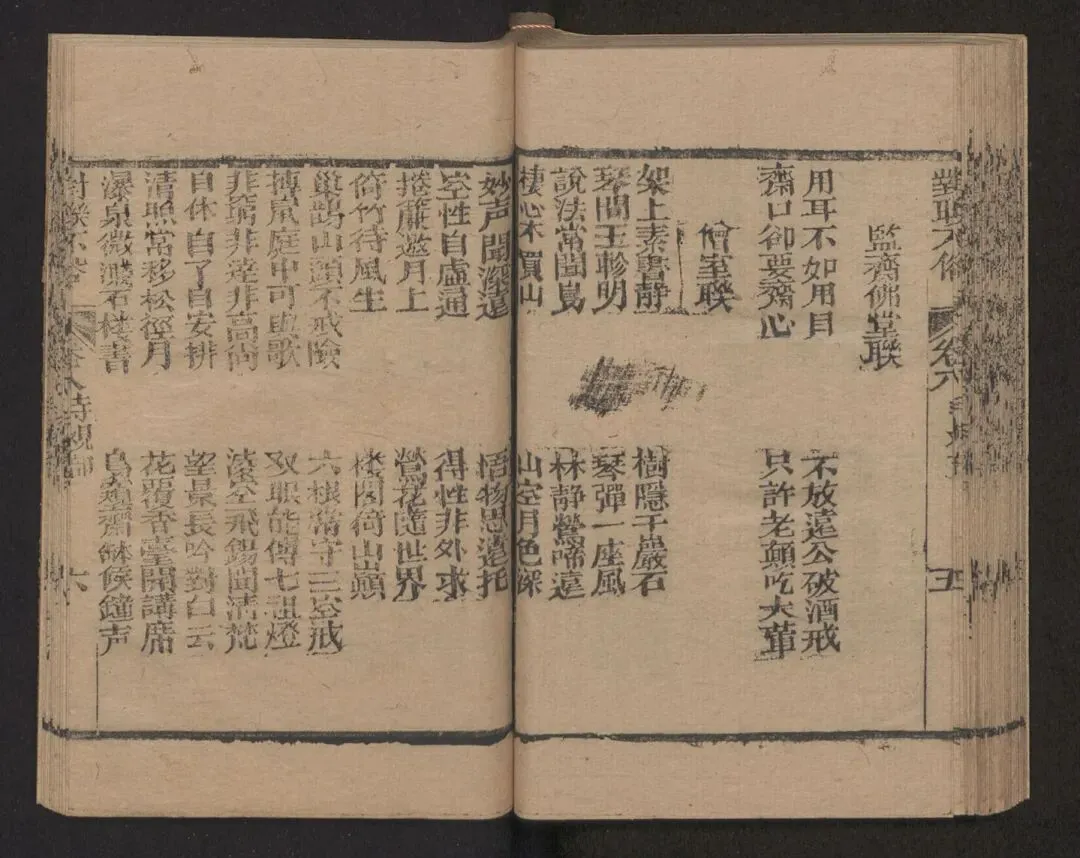 對聯不俗
卷六
五
監齋佛堂聯
用耳不如用目
不放遠公破酒戒
齋口卻要齋心
只許老顛吃大葷
僧室聯
架上素書靜
樹隱千巖石
琴間玉軫明
琴彈一座風
說法常聞鳥
林静鶯啼遠
棲心不買山
山空月色深
妙声聞深遠
悟物思遠托
空性自虛通
得性非外求
捲簾邀月上
鶯花隨世界
倚竹待風生
樓閣倚山巔
巢鵲山頭不戒險
六根常守三空戒
搏鼠庭中可與歌
双眼能傳七祖燈
非窮非達非高尚
凌空飛錫聞清梵
自休自了自安排
望景長吟對白云
清照常移松徑月
花覆香臺開講席
瀑泉微濺石樓書
鳥窺齋缽候鐘声
對联不俗
卷六
六